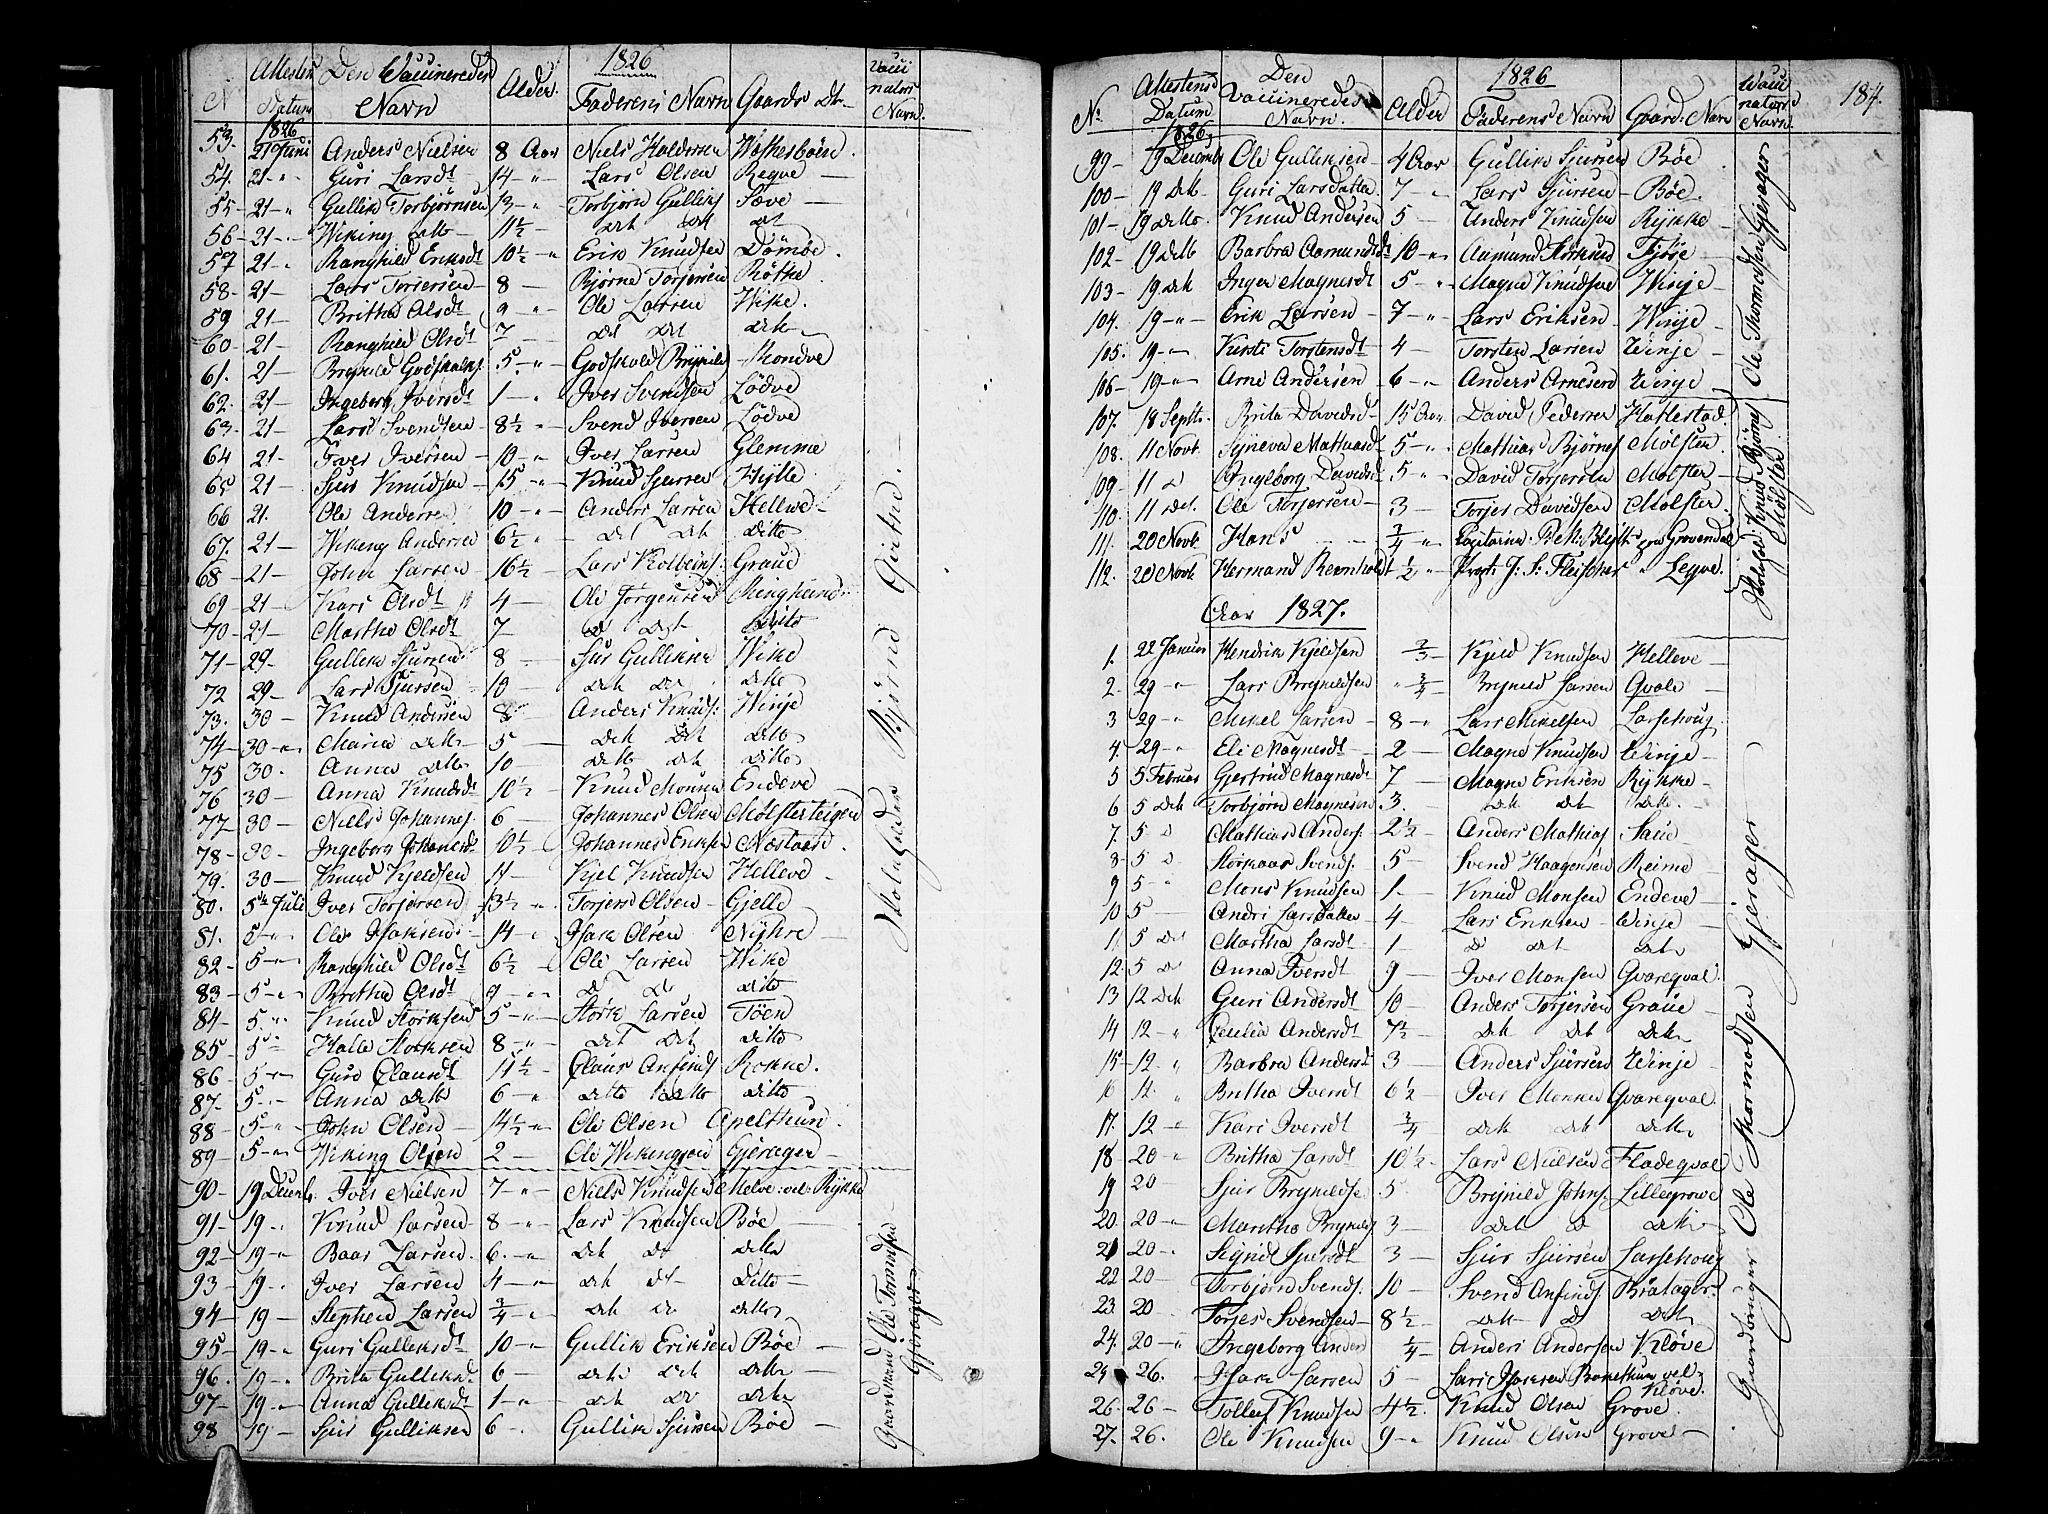 1826
N Attestens Datum Den Vaccineredes Navn Alder Faderens Navn Gaards Vaccinators Navn.
1826
53. 21 Juni Anders Nielsen 8 Aar Niels Haldorsen
54. 21 - " Guri Larsdt 14 - " Lars Olsen Regve -
55 - 21 - " Gullik Torbjørnsen 13 - " Torbjørn Gulliks Sæve -
56 - 21 - Wiking ditto 11½ - Dit Dit Dt
57 21 - " Ranghild Eriksdt 10½ - " Erik Knudsen Dømbe.
58 - 21 - Lars Torjersen - 8 - Bjørne Torjersen Røthe
59 21 - Britha Olsdt 9 - " Ole Larsen Wike.
60 - 21 - Ranghild Olsdt 7 - Dt Dt Ditto
61. 21 - Brynild Godskalks. 5 - " Godskald Brynilds Mondve
62. 21 - Ingeborg Iversdt 1 - " Iver Svendsen Lødve
63. 21 - Lars Svendsen 8½ - Svend Iversen Lødve
64 21 - Iver Iversen - 10 - " Iver Larsen Glemme
65 21 - Sjur Knudsen - 15 - " Knud Sjursen Hylle
66 21. Ole Andersen 10 - " Anders Larsen Hellve -
67. 21 - Wiking Andersen 6½ - " Dt Dit Ditto
68 - 21 - John Larsen - 16½ - Lars Kolbeins: Graue
69 - 21 - Kari Olsdt 4 - Ole Jørgensen Ringheim
70 - 21 - Martha Olsdt 7 - Dt Dit Ditto
71 - 29 - Gullik Sjursen 8 - Sjur Gulliksen Wike
72 29 - Lars Sjursen 10 - Dit Dt Ditto
73. 30 - Knud Andersen 8 - Anders Knuds: Winje
74 - 30 - " Maria Ditto 5 - Dit Dit Ditto
75 30. Anna Ditto 10 - Ditto Dit Ditto
76 30 - Anna Knudsdt 10½ - Knud Monsen Endeve
77 - 30 - Niels Johannes. 6 - Johannes Olsen Mølsterteigen
78 - 30 - Ingeborg Johansdt 10½ - Johannes Eriksen Næstaas.
79. 30 - Knud Kjeldsen 11 - Kjel Knudsen Helleve -
80. 5te Juli Iver Torjersen 13½ - " Torjers Olsen - Gjelle
81. 5 - " Ole Isaksen 14 - " Isak Olsen Nyhre -
82 - 5 - " Ranghild Olsdt 6½ - Ole Larsen Wike
83 - 5 - " Britha Olsdt 9 - " D D Ditto
84 - 5. " Knud Størksen 5 - " Størk Larsen Tøen
85 - 5 - Halle Størksen 8 - " Dt Dt Ditto
86 - 5 - " Guro Clausdt 11½ - Claus Anfinds Rokne.
87. 5 - Anna Ditto 6 - " Ditto Ditto Ditto
88 - 5 - " John Olsen - 14½ - " Ole Olsen Apelthun
89 - 5 - " Wiking Olsen 2 - Ole Wikingsen Gjerager -
Skoleholder Bjørne Girtnd.
90 - 19 Decemb. Iver Nielsen 7 - " Niels Knudsen Melve: vel: Rykke
91 - 19 - " Knud Larsen 8 - " Lars Knudsen Bøe -
92 - 19 - " Baar Larsen. 6. - " Dit Dt Ditto
93 - 19 - " Iver Larsen 4 - " Dit Dt - Ditto -
94 - 19 - Stephen Larsen ¾ - " Dit Dt Ditto
95 - 19 - " Guri Gulliksdt 10 - " Gullik Eriksen Bøe -
96. 19 - " Brita Gulliksd. 6 - Dit Dit Ditto
97 - 19 - " Anna Gulliksdt 1 - " Dt Dt Ditto
98 19 - Sjur Gulliksen 6 - Gullik Sjursen Bøe -
Gaardmand Ole Tormodsen Gjerager
184.
1826
No Attestens Datum Den Vaccineredes Navn. Alder Faderens Navn Gaard. Navn Vaccinators Navn.
1826.
99 - 19 Decemb Ole Gulliksen - 4 Aar Gullik Sjursen Bøe -
100 - 19 Dit - Guri Larsdatter 7 - " Lars Sjursen - Bøe -
101 - 19 Ditto. Knud Andersen 5 - Anders Knudsen Rykke -
102 - 19 Ditto Barbra Aamundsdt 10 - " Aamund Størksen Fjøse -
103 - 19 Dit Inger Magnesdt 5 - " Magne Knudsen Winje -
104. 19 - " Erik Larsen - 7 - " Lars Eriksen - Winje -
105. 19 - " Kirsti Torstensdt 4 - Torsten Larsen Winje -
106 - 19 - " Arne Andersen - 6 - " Anders Arnesen Winje
Ole Thormodsen Gjerager
107. 18 Septb. Brita Davidsd - 15 Aar David Pedersen Hattestad
108. 11 Novb. Synneva Mathiasd - 5 - " Mathias Bjørnes Mølster
109 - 11 D Ingeborg Davidsd - 5 - " David Torjersen Mølster -
110. 11 Dt. Ole Torjersen - 3 - Torjes Davidsen Mølster.
111. 20 Novb Hans - - ¾ - " Capitaine Blytt Grovendal
112. 20 Novb Hermand Reinholdt ½ - " Prost J. S: Fleischer " Legve.
Skoleh: Knud Bjørnes. Mølster.
Aar 1827.
1. 22 Januar Hendrik Kjeldsen ⅔ - Kjeld Knudsen Helleve -
2. 29 " Lars Brynildsen " ¾ - Brynild Larsen Qvale -
3 29 - " Mikel Larsen - 8 - " Lars Mikelsen Larsehoug
4. 29 - " Eli Magnesdt - 2 - Magne Knudsen Winje -
5 5 Februar Gjertrud Magnesdt 7 - Magne Eriksen Rykke -
6 5 Dit Torbjørn Magnesen 3. Dit Dit Ditto.
7. 5 D Mathias Anders: 2½ - Anders Mathias Saue -
8 - 5 D Storkaar Svends. 5 - Svend Haagensen Reime
9 5 - " Mons Knudsen 1 - Knud Monsen Endeve -
10 5 - Andri Larsdatter 4 - Lars Eriksen - Winje -
11 5 Dit Martha Larsdt - 1 - D Dt Dit -
12. 5 Dt Anna Iversdt 9 - Iver Monsen Gvareqval.
13 12 Dit Guri Andersdt 10 - Anders Torjersen Graue -
14 12 - " Cecilia Andersdt 7½ - Dit Dt Ditto
15 - 12 " Barbra Andersdt - 3 - Anders Sjursen Winje -
16 12. " Britha Iversdt 6½ - Iver Monsen Gvareqval.
17. 12 - " Kari Iversdt ¾ Dit Dit Ditto
18 20 - " Britha Larsdt - 10½ - Lars Nielsen Flodeqval
19 20 - Sjur Brynildse. 5. Brynild Johns. Lillegrove
20. 20 - " Martha Brynilds 3 - Dit D Dit -
21 20 - " Signe Sjursdt - 3 - Sjur Sjursen Larsehoug
22 20 - Torbjørn Svends. 10 - Svend Anfinds Bratager -
23. 20 Torjes Svendsen - 8½ - Dit - D Dit
24. 20 - " Ingeborg Anders ¼ - Anders Andersen Kløve
25 . 26. Isak Larsen 5 - Lars Isaksen Bonethun vel - Kløve.
26. 26 - Tollef Knudsen 4½. Knud Olsen Grove.
27. 26. Ole Knudsen 9 - " Knud Olsen Grove -
Gaardbruger Ole Thormodsen Gjerager